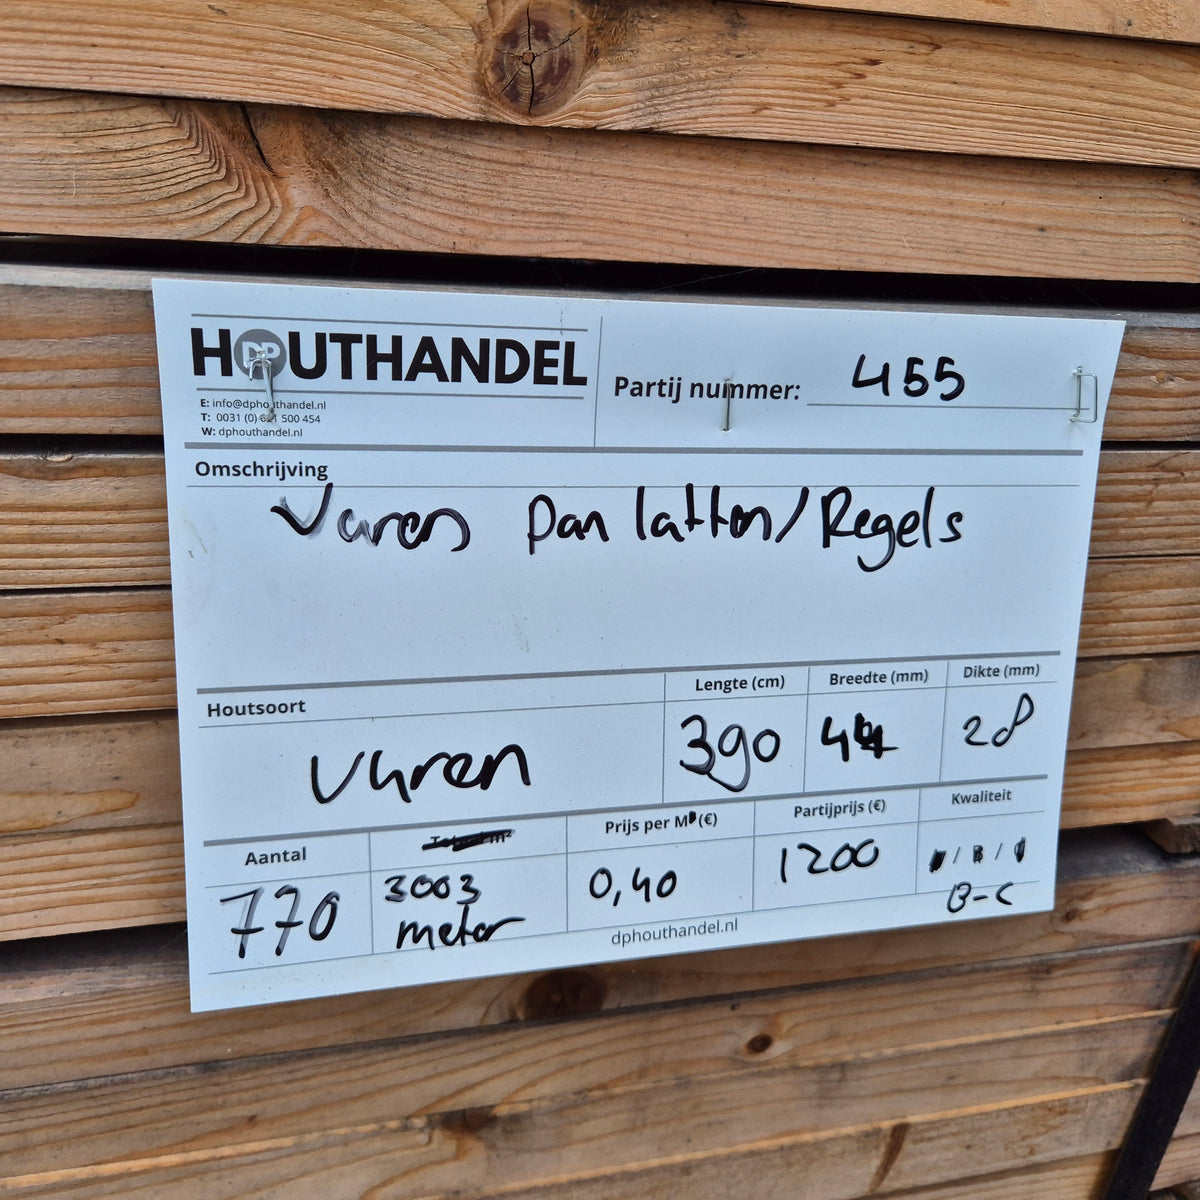 HOUTHANDEL
DP
E: info@dphouthandel.nl
T: 0031 (0) 621 500 454
W: dphouthandel.nl
Partij nummer: 455
Omschrijving
Vuren Pan latten/Regels
Houtsoort
Vuren
Lengte (cm)
390
Breedte (mm)
Dikte (mm)
28
Aantal
770
3003
meter
Prijs per M (€)
0,40
Partijprijs (€)
1200
Kwaliteit
/ B /
B-C
dphouthandel.nl